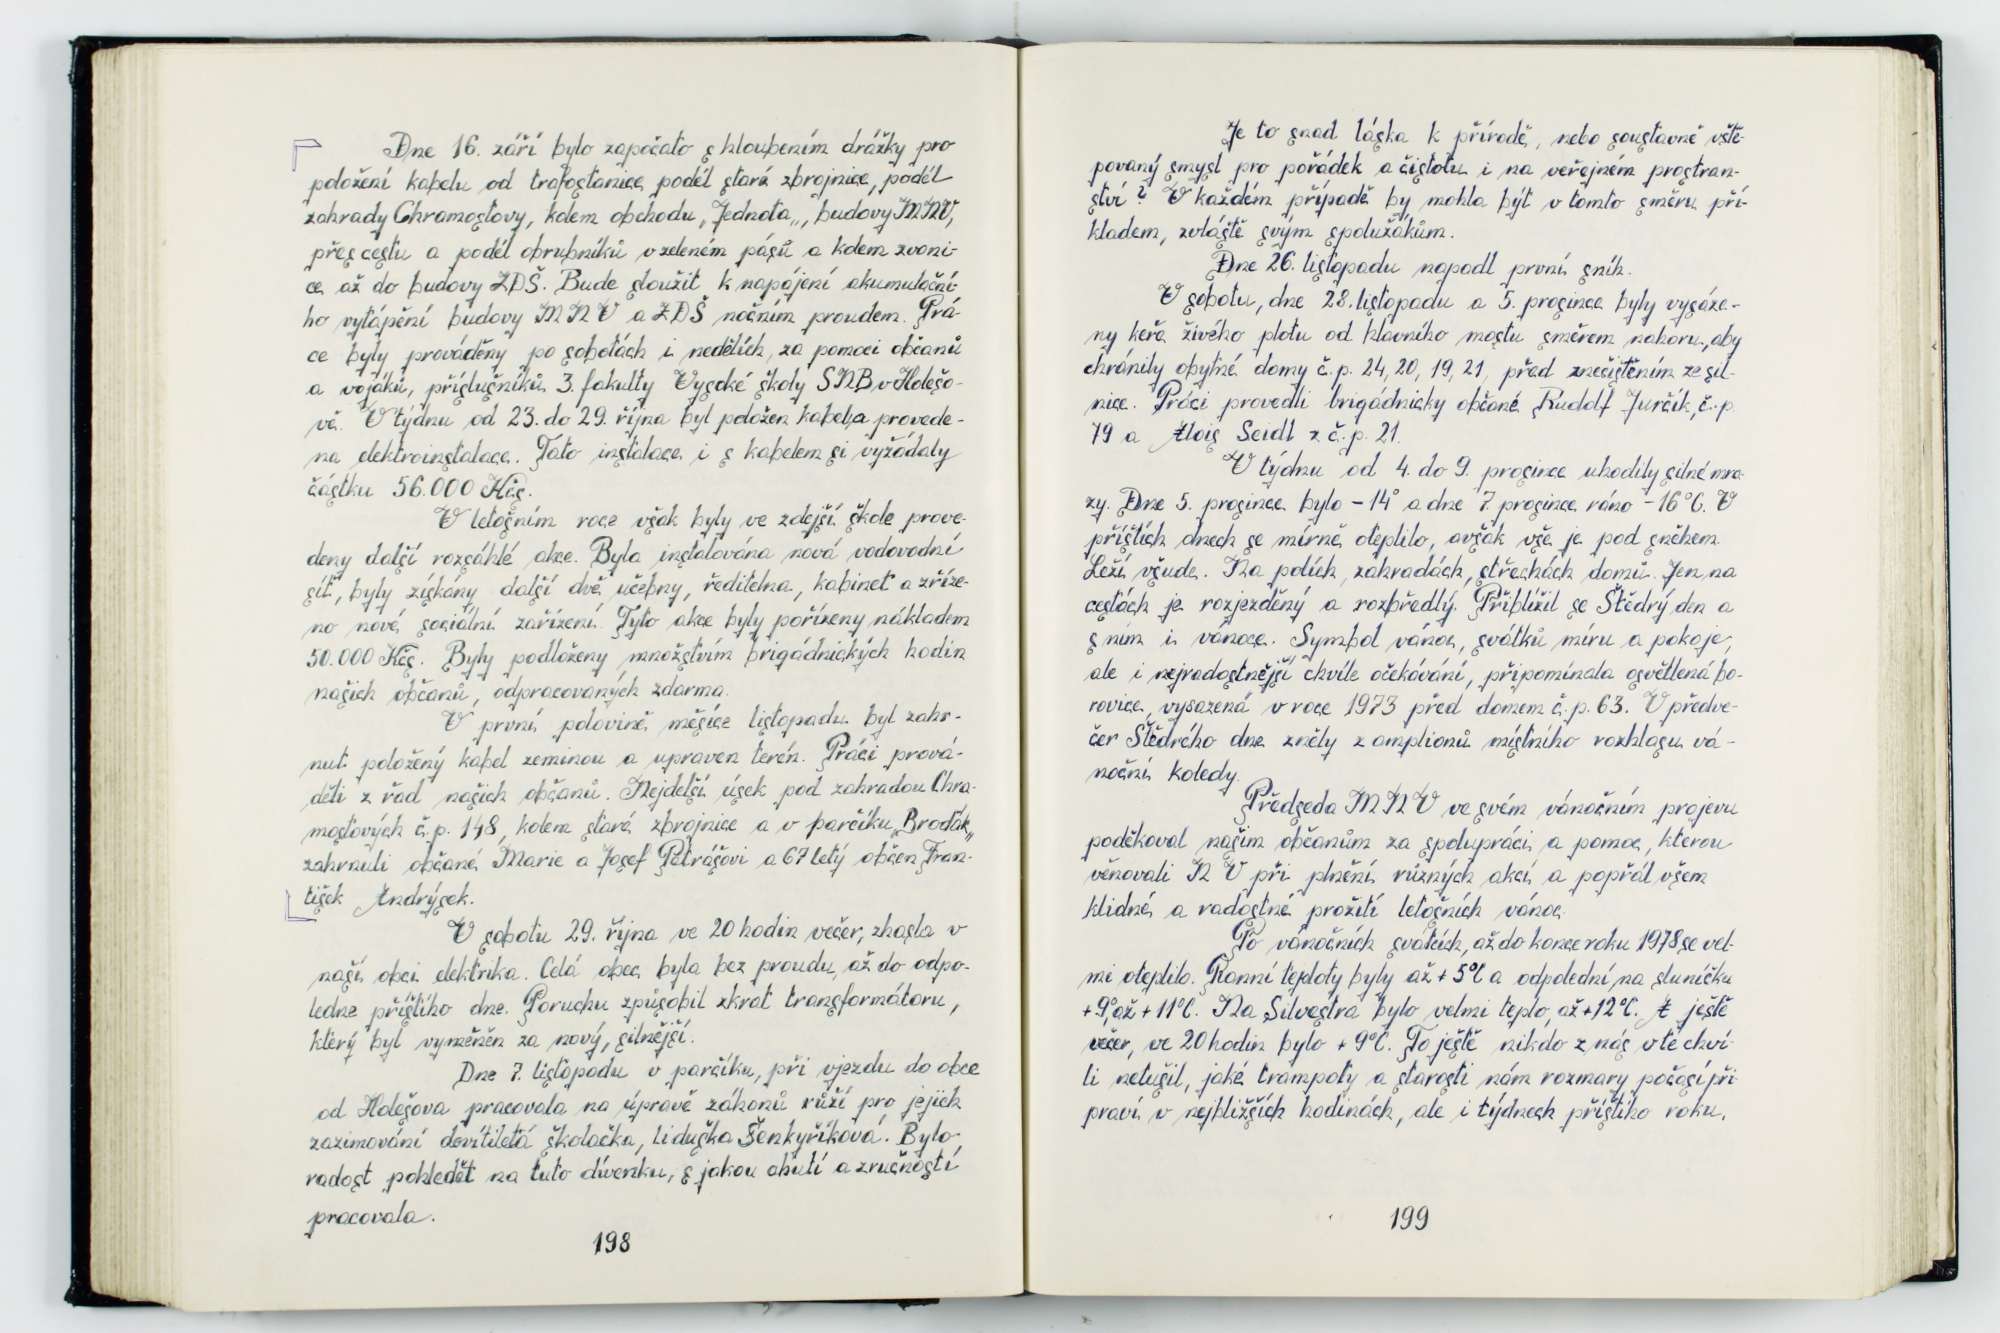 Dne 16. září bylo započato s hloubením drážky pro
položení kabelu od trafostanice podél staré zbrojnice, podél
zahrady Chramostovy, kolem obchodu „Jednota„, budovy MNV,
přes cestu a podél obrubníků v zeleném pásů a kolem zvoni-
ce až do budovy ZDŠ. Bude sloužit k napájení akumulační-
ho vytápění budovy MNV a ZDŠ nočním proudem. Prá-
ce byly prováděny po sobotách i nedělích, za pomoci občanů
a vojáků, příslušníků 3. fakulty Vysoké školy SNB v Holešo-
vě. V týdnu od 23. do 29. října byl položen kabel a provede-
na elektroinstalace. Tato instalace i s kabelem si vyžádaly
částku 56.000 Kčs.
V letošním roce však byly ve zdejší škole prove-
deny další rozsáhlé akce. Byla instalována nová vodovodní
síť, byly získány další dvě učebny, ředitelna, kabinet a zříze-
no nové sociální zařízení. Tyto akce byly pořízeny nákladem
50.000 Kčs. Byly podloženy množstvím brigádnických hodin
našich občanů, odpracovaných zdarma.
V první polovině měsíce listopadu byl zahr-
nut položený kabel zeminou a upraven terén. Práci prová-
děli z řad našich občanů. Nejdelší úsek pod zahradou Chra-
mostových č.p. 148, kolem staré zbrojnice a v parčíku „Broďák„
zahrnuli občané Marie a Josef Petrášovi a 67 letý občan Fran-
tišek Andrýsek.
V sobotu 29. října ve 20 hodin večer, zhasla v
naší obci elektrika. Celá obec byla bez proudu až do odpo-
ledne příštího dne. Poruchu způsobil zkrat transformátoru,
který byl vyměněn za nový, silnější.
Dne 7. listopadu v parčíku, při vjezdu do obce
od Holešova pracovala na úpravě záhonů růží pro jejich
zazimování devítiletá školačka, Liduška Šenkyříková. Bylo
radost pohledět na tuto dívenku, s jakou chutí a zručností
pracovala.
198
Je to snad láska k přírodě, nebo soustavně vště-
povaný smysl pro pořádek a čistotu i na veřejném prostran-
ství? V každém případě by mohla být v tomto směru pří-
kladem, zvláště svým spolužákům.
Dne 26. listopadu napadl první sníh.
V sobotu, dne 28. listopadu a 5. prosince byly vysáze-
ny keře živého plotu od hlavního mostu směrem nahoru, aby
chránily obytné domy č.p. 24, 20, 19, 21, před znečištěním ze sil-
nice. Práci provedli brigádnicky občané Rudolf Jurčík, č.p.
79 a Alois Seidl z č.p. 21.
V týdnu od 4. do 9. prosince uhodily silné mra-
zy. Dne 5. prosince bylo -14° a dne 7. prosince ráno -16°C. V
příštích dnech se mírně oteplilo, avšak vše je pod sněhem.
Leží všude. Na polích, zahradách, střechách domů. Jen na
cestách je rozjezděný a rozbředlý. Přiblížil se Štědrý den a
s ním i vánoce. Symbol vánoc, svátků míru a pokoje,
ale i nejradostnější chvíle očekávání, připomínala osvětlená bo-
rovice, vysazená v roce 1973 před domem č.p. 63. V předve-
čer Štědrého dne zněly z amplionů místního rozhlasu vá-
noční koledy.
Předseda MNV ve svém vánočním projevu
poděkoval našim občanům za spolupráci a pomoc, kterou
věnovali NV při plnění různých akcí a popřál všem
klidné a radostné prožití letošních vánoc.
Po vánočních svátcích, až do konce roku 1978 se vel-
mi oteplilo. Ranní teploty byly až +5°C a odpolední na sluníčku
+9°, až +11°C. Na Silvestra bylo velmi teplo, až +12°C. A ještě
večer, ve 20 hodin bylo +9°C. To ještě nikdo z nás v té chví-
li netušil, jaké trampoty a starosti nám rozmary počasí při-
praví v nejbližších hodinách, ale i týdnech příštího roku.
199